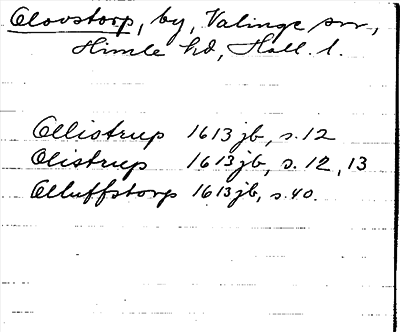 Olovstorp, by, Valinge sn,
Himle hd, Hall. l.
Ollistrup 1613 jb, s. 12
Olistrup 1613 jb, s. 12, 13
Olluffstorp 1613 jb, s. 40.